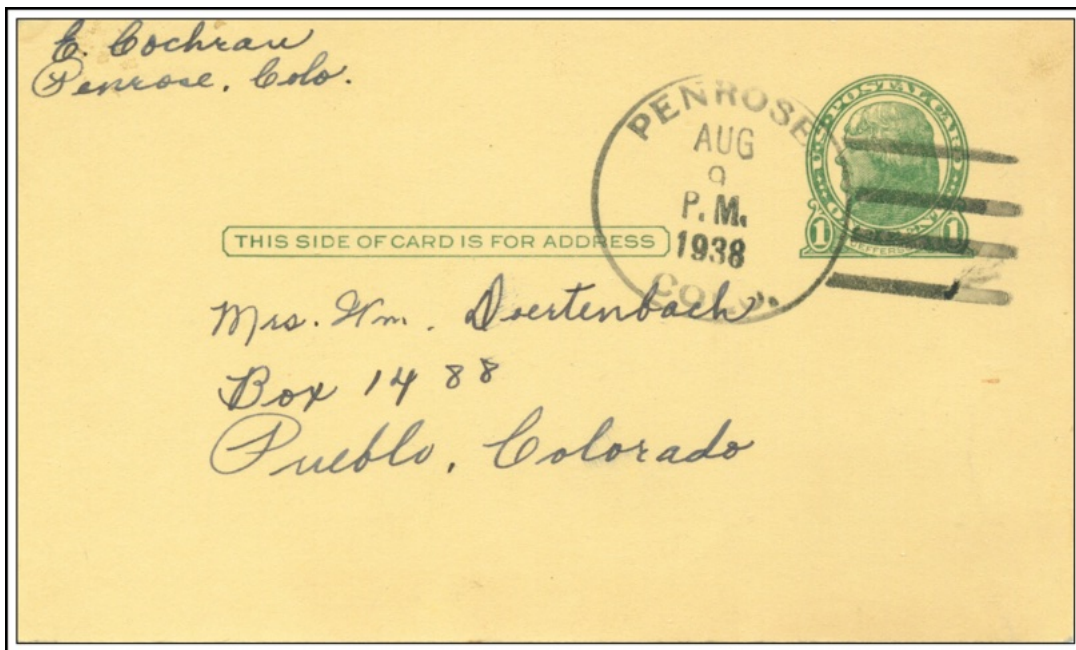 E. Cochran
Penrose, Colo.
PENROSE
AUG
9
P.M.
1938
COLO.
U.S. POSTAL CARD
ONE CENT
1 JEFFERSON 1
THIS SIDE OF CARD IS FOR ADDRESS
Mrs. Wm. Doertenbach
Box 1488
Pueblo, Colorado